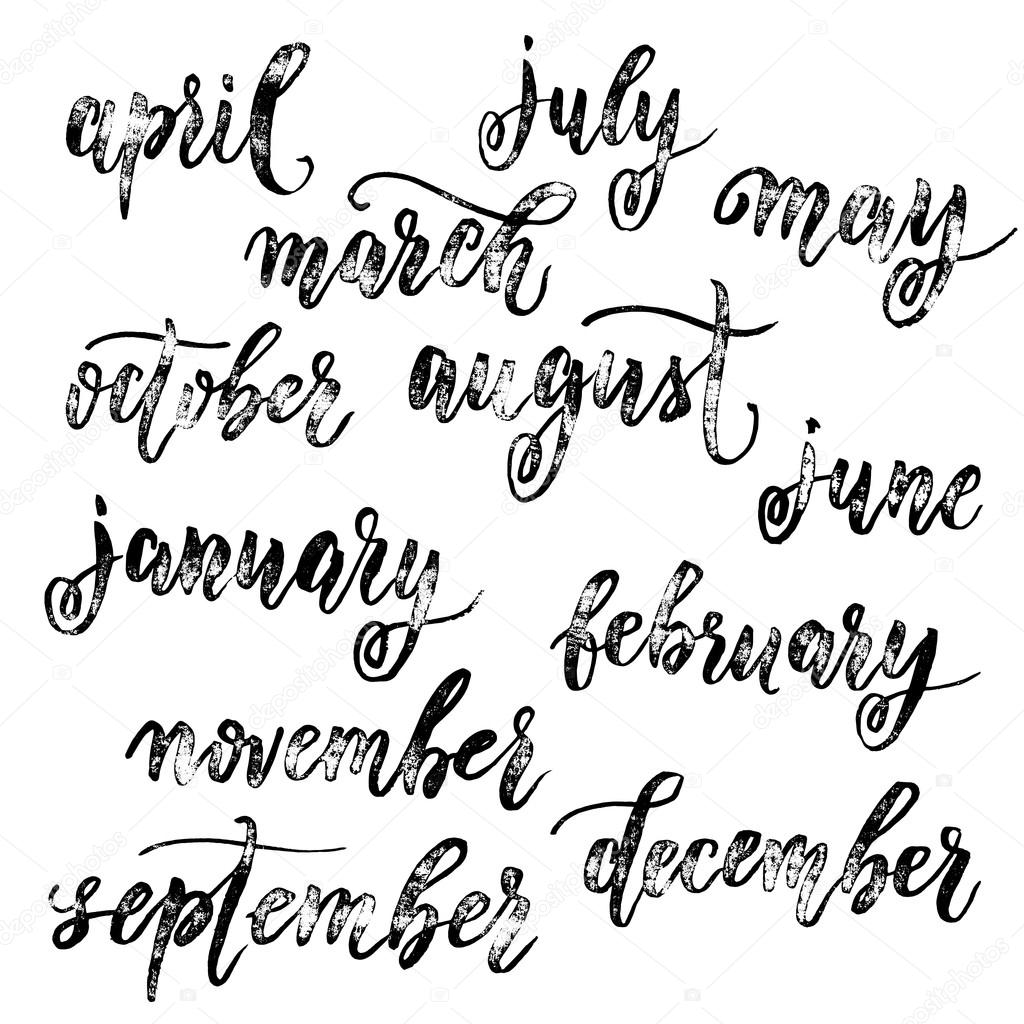 april
july
may
march
october
august
june
january
february
november
december
september
depositphotos